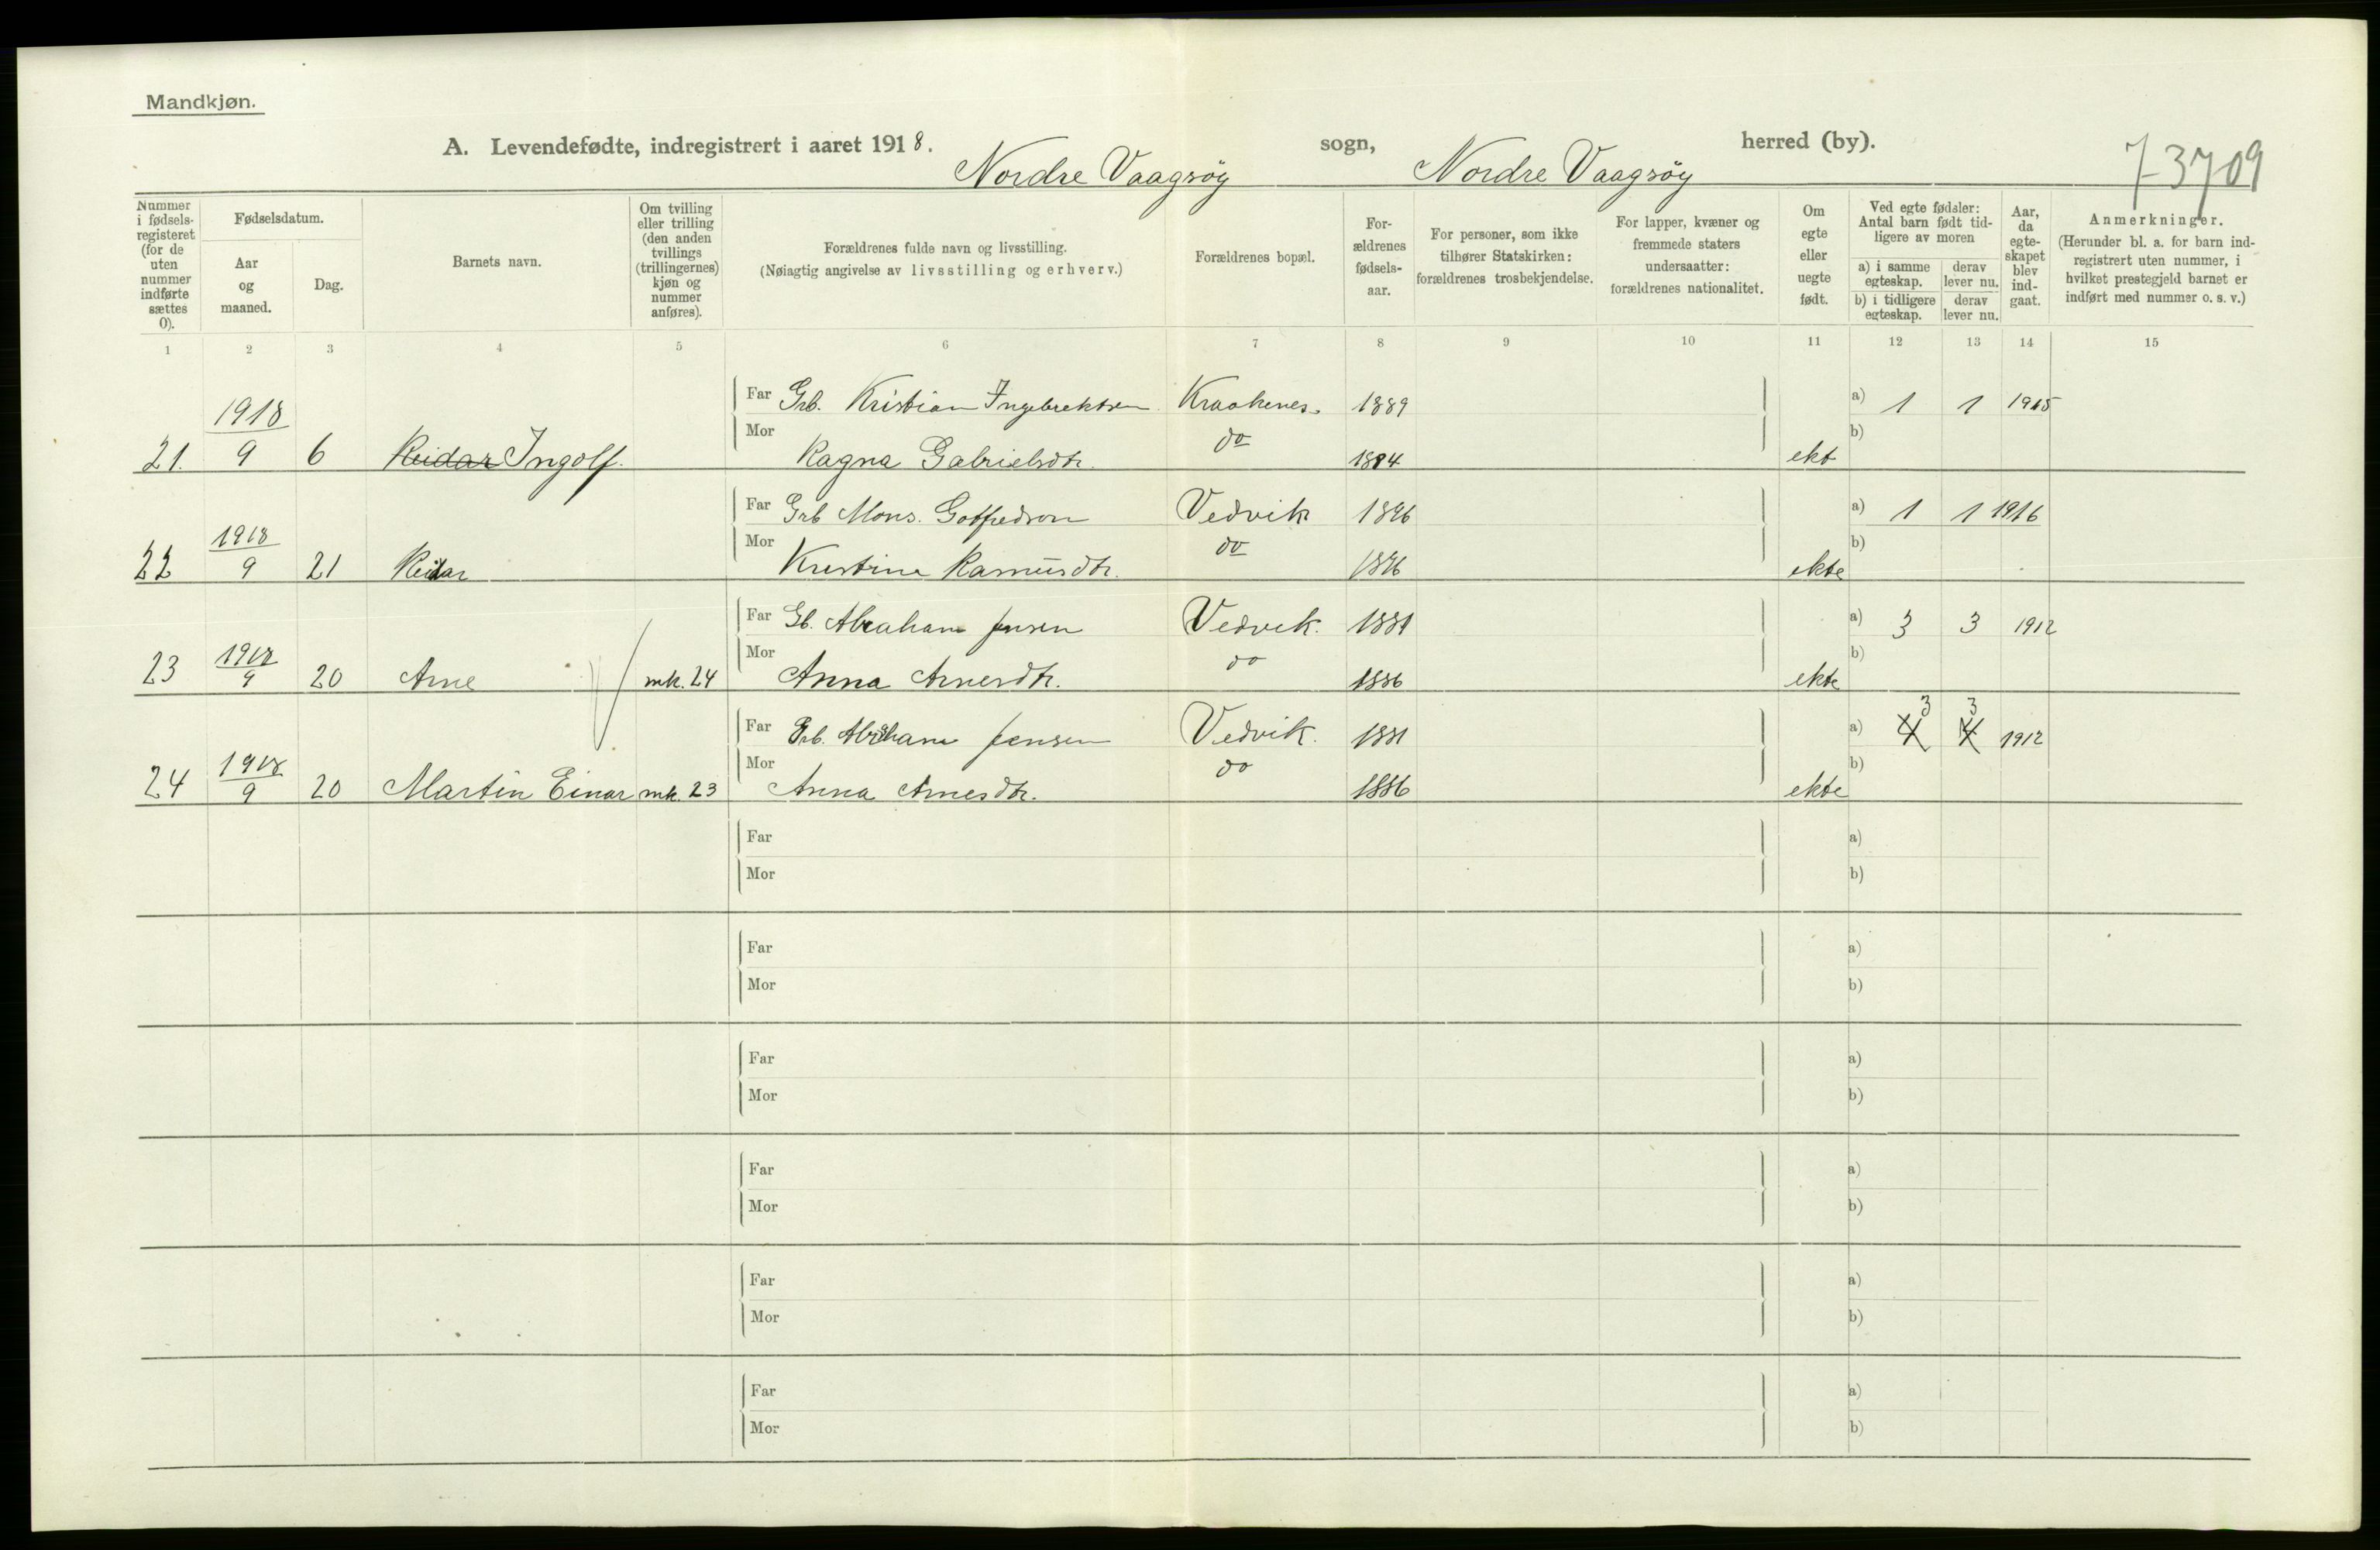 Mandkjøn.
A. Levendefødte, indregistrert i aaret 1918. Nordre Vaagsöy sogn, Nordre Vaagsöy herred (by).
7-3709
Nummer i fødsels-registeret (for de uten nummer indførte sættes 0).
Fødselsdatum.
Aar og maaned.
Dag.
Barnets navn.
Om tvilling eller trilling (den anden tvillings (trillingernes) kjøn og nummer anføres).
Forældrenes fulde navn og livsstilling.
(Nøiagtig angivelse av livsstilling og erhverv.)
Forældrenes bopæl.
For-ældrenes fødsels-aar.
For personer, som ikke tilhører Statskirken: forældrenes trosbekjendelse.
For lapper, kvæner og fremmede staters undersaatter: forældrenes nationalitet.
Om egte eller uegte født.
Ved egte fødsler: Antal barn født tid-ligere av moren
a) i samme egteskap. derav lever nu.
b) i tidligere egteskap. derav lever nu.
Aar, da egte-skapet blev ind-gaat.
Anmerkninger.
(Herunder bl. a. for barn ind-registrert uten nummer, i hvilket prestegjeld barnet er indført med nummer o. s. v.)
1 2 3 4 5 6 7 8 9 10 11 12 13 14 15
1918 Far Grb. Kristian Ingebrektsen Kraakenes. 1889 a) 1 1 1915
21. 9 6 Reidar Ingolf. Mor Ragna Gabrielsdtr. do 1894 ekt b)
1918 Far Grb Mons. Gotfredson Vedvik 1896 a) 1 1 1916
22 9 21 Reidar Mor Kristine Rasmusdtr. do 1896 ekte b)
1918 Far Gb. Abraham Jensen Vedvik. 1881 a) 3 3 1912
23 9 20 Arne mk. 24 Mor Anna Arnesdtr. do 1886 ekte b)
1918 Far Grb. Abraham Jensen Vedvik. 1881 a) 4 3 4 3 1912
24 9 20 Martin Einar mk. 23 Mor Anna Arnesdtr. do 1886 ekte b)
Far a)
Mor b)
Far a)
Mor b)
Far a)
Mor b)
Far a)
Mor b)
Far a)
Mor b)
Far a)
Mor b)